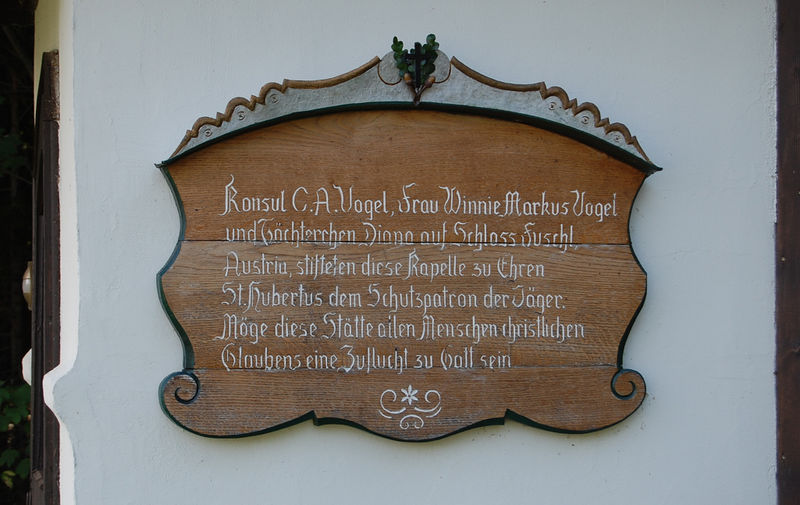 Konsul C.A.Vogel, Frau Winnie Markus Vogel
und Töchterchen Diana auf Schloss Fuschl,
Austria, stifteten diese Kapelle zu Ehren
St.Hubertus dem Schutzpatron der Jäger.
Möge diese Stätte allen Menschen christlichen
Glaubens eine Zuflucht zu Gott sein